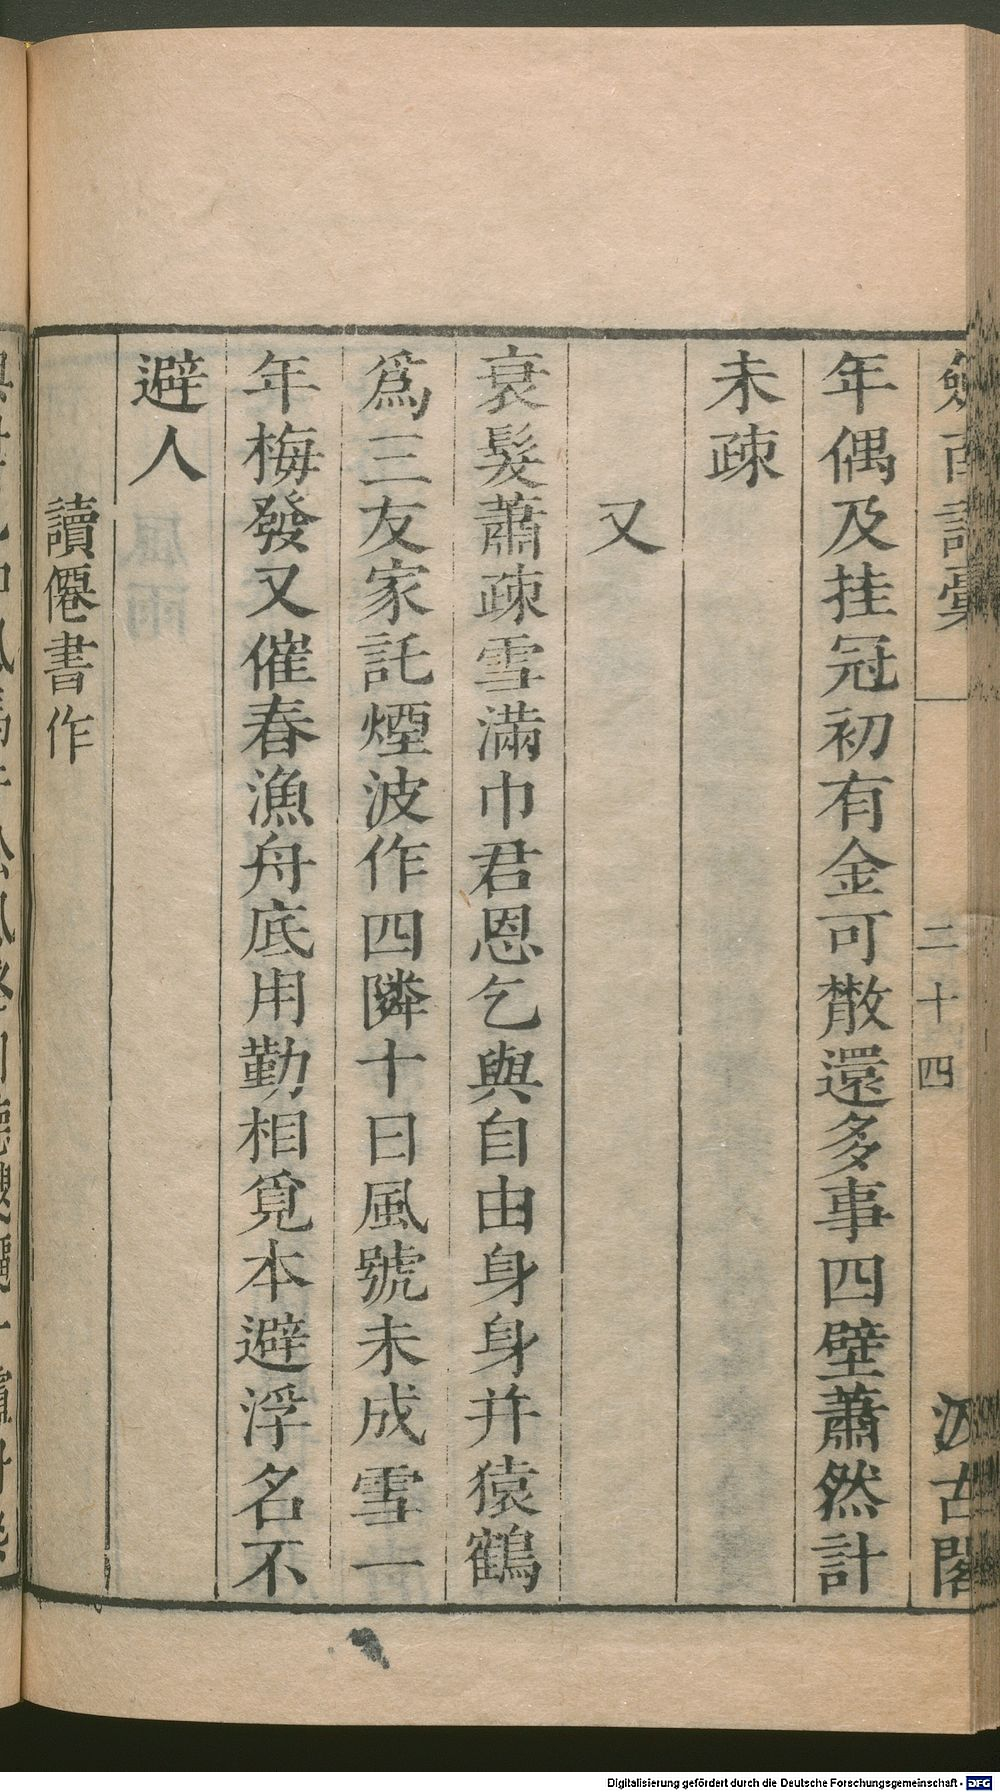 劒南詩稾 二十四 汲古閣
年偶及挂冠初有金可散還多事四壁蕭然計
未疎
又
衰髮蕭疎雪滿巾君恩乞與自由身身并猿鶴
爲三友家託煙波作四隣十日風號未成雪一
年梅發又催春漁舟底用勤相覓本避浮名不
避人
讀僊書作
Digitalisierung gefördert durch die Deutsche Forschungsgemeinschaft - DFG